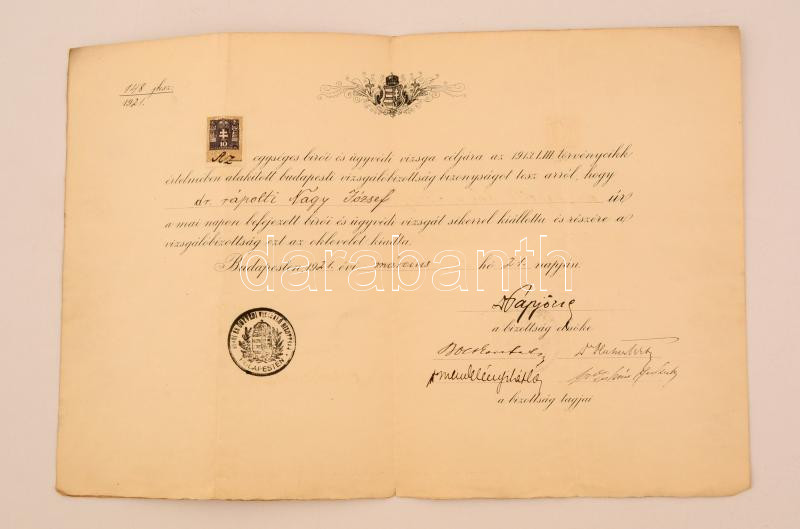 148 jksz.
1921.
10
Az egységes birói és ügyvédi vizsga céljára az 1913. LIII. törvénycikk
értelmében alakított budapesti vizsgálóbizottság bizonyságot tesz arról, hogy
dr. rápolti Nagy József úr
a mai napon befejezett birói és ügyvédi vizsgát sikerrel kiállotta és részére a
vizsgálóbizottság ezt az oklevelet kiadta.
Budapesten, 1921. évi március hó 21. napján.
a bizottság elnöke
a bizottság tagjai
BUDAPESTEN
darabanth